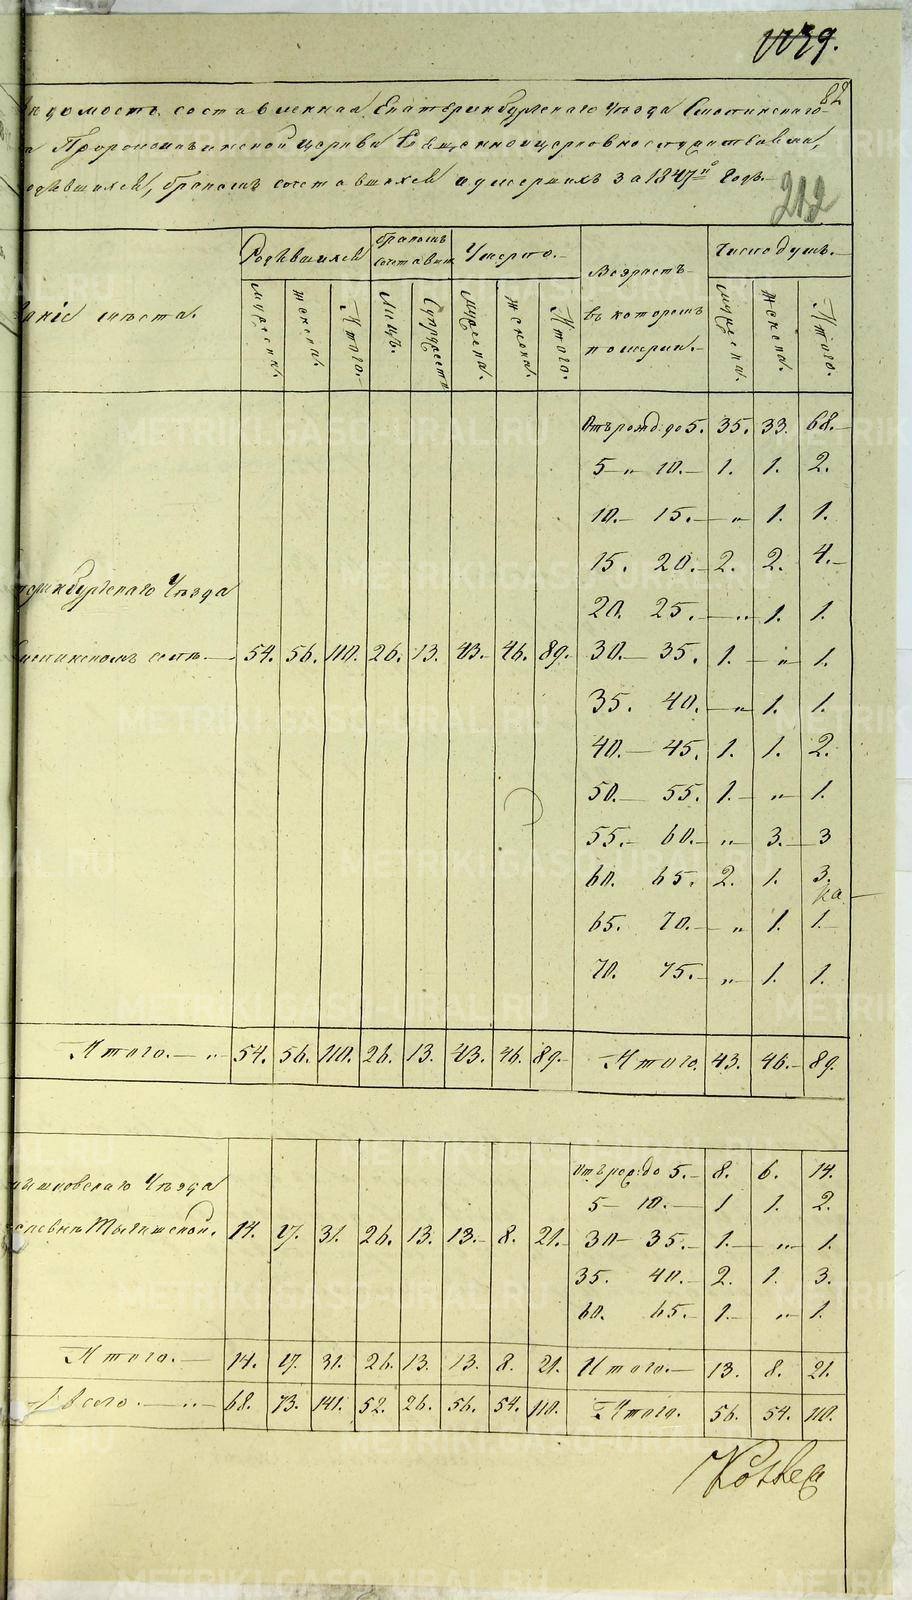 1139.
82
составленная Екатеринбургскаго Уѣзда
Пророкоильинской церкви Священноцерковнослужителями,
бракомъ сочетавшихся и умершихъ за 1847й годъ.
212
мѣста.
Родившихся
бракомъ сочетавш.
Умерло.
Возрастъ въ которомъ померли.
Число душъ.
мужеска.
женска.
Итого.
Лицъ.
Супружествъ
мужеска.
женска.
Итого.
мужеска.
женска.
Итого.
Отъ рожд: до 5. 35. 33. 68.
5 „ 10. 1. 1. 2.
10. 15. „ 1. 1.
15. 20. 2. 2. 4.
Уѣзда
20. 25. „ 1. 1.
селѣ. 54. 56. 110. 26. 13. 43. 46. 89. 30. 35. 1. „ 1.
35. 40. „ 1. 1.
40. 45. 1. 1. 2.
50. 55. 1. „ 1.
55. 60. „ 3. 3
60. 65. 2. 1. 3.
65. 70. „ 1. 1.
70. 75. „ 1. 1.
Итого. „ 54. 56. 110. 26. 13. 43. 46. 89. Итого. 43. 46. 89.
Отъ рож: до 5. 8. 6. 14.
Уѣзда
5 10. 1 1. 2.
14. 17. 31. 26. 13. 13. 8. 21. 30 35. 1. „ 1.
35. 40. 2. 1. 3.
60. 65. 1. „ 1.
Итого. 14. 17. 31. 26. 13. 13. 8. 21. Итого. 13. 8. 21.
Всего. „ 68. 73. 141. 52. 26. 56. 54. 110. Итого. 56. 54. 110.
METRIKI.GASO-URAL.RU